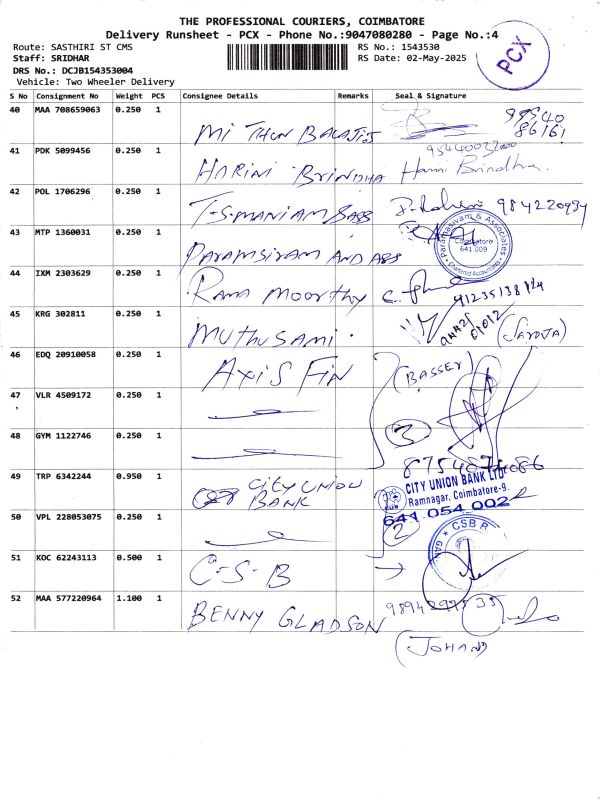 THE PROFESSIONAL COURIERS, COIMBATORE
Delivery Runsheet - PCX - Phone No.:9047080280 - Page No.:4
Route: SASTHIRI ST CMS
RS No.: 1543530
Staff: SRIDHAR
RS Date: 02-May-2025
DRS No.: DCJB154353004
Vehicle: Two Wheeler Delivery
PCX
S No Consignment No Weight PCS Consignee Details Remarks Seal & Signature
40 MAA 708659063 0.250 1
MiThun BALAJI
99940
86161
41 PDK 5099456 0.250 1
HARINI BRINDHA Harini Brindha
42 POL 1706296 0.250 1
T-S-MANIAM SABS
984220934
43 MTP 1360031 0.250 1
PARAMSIVAM AND ABS
Paramasivam & Associates
Coimbatore
641 009
Chartered Accountants
44 IXM 2303629 0.250 1
Rama Moorthy
45 KRG 302811 0.250 1
MUTHUSAMI
(SAROJA)
46 EDQ 20910058 0.250 1
AXIS FIN
(BASSER)
47 VLR 4509172 0.250 1
48 GYM 1122746 0.250 1
3
49 TRP 6342244 0.950 1
CITY UNION
BANK
CITY UNION BANK LTD
Ramnagar, Coimbatore-9.
CUB
641 054 002
50 VPL 228053075 0.250 1
2
51 KOC 62243113 0.500 1
C-S-B
CSB
52 MAA 577220964 1.100 1
BENNY GLADSON
(JOHAN)